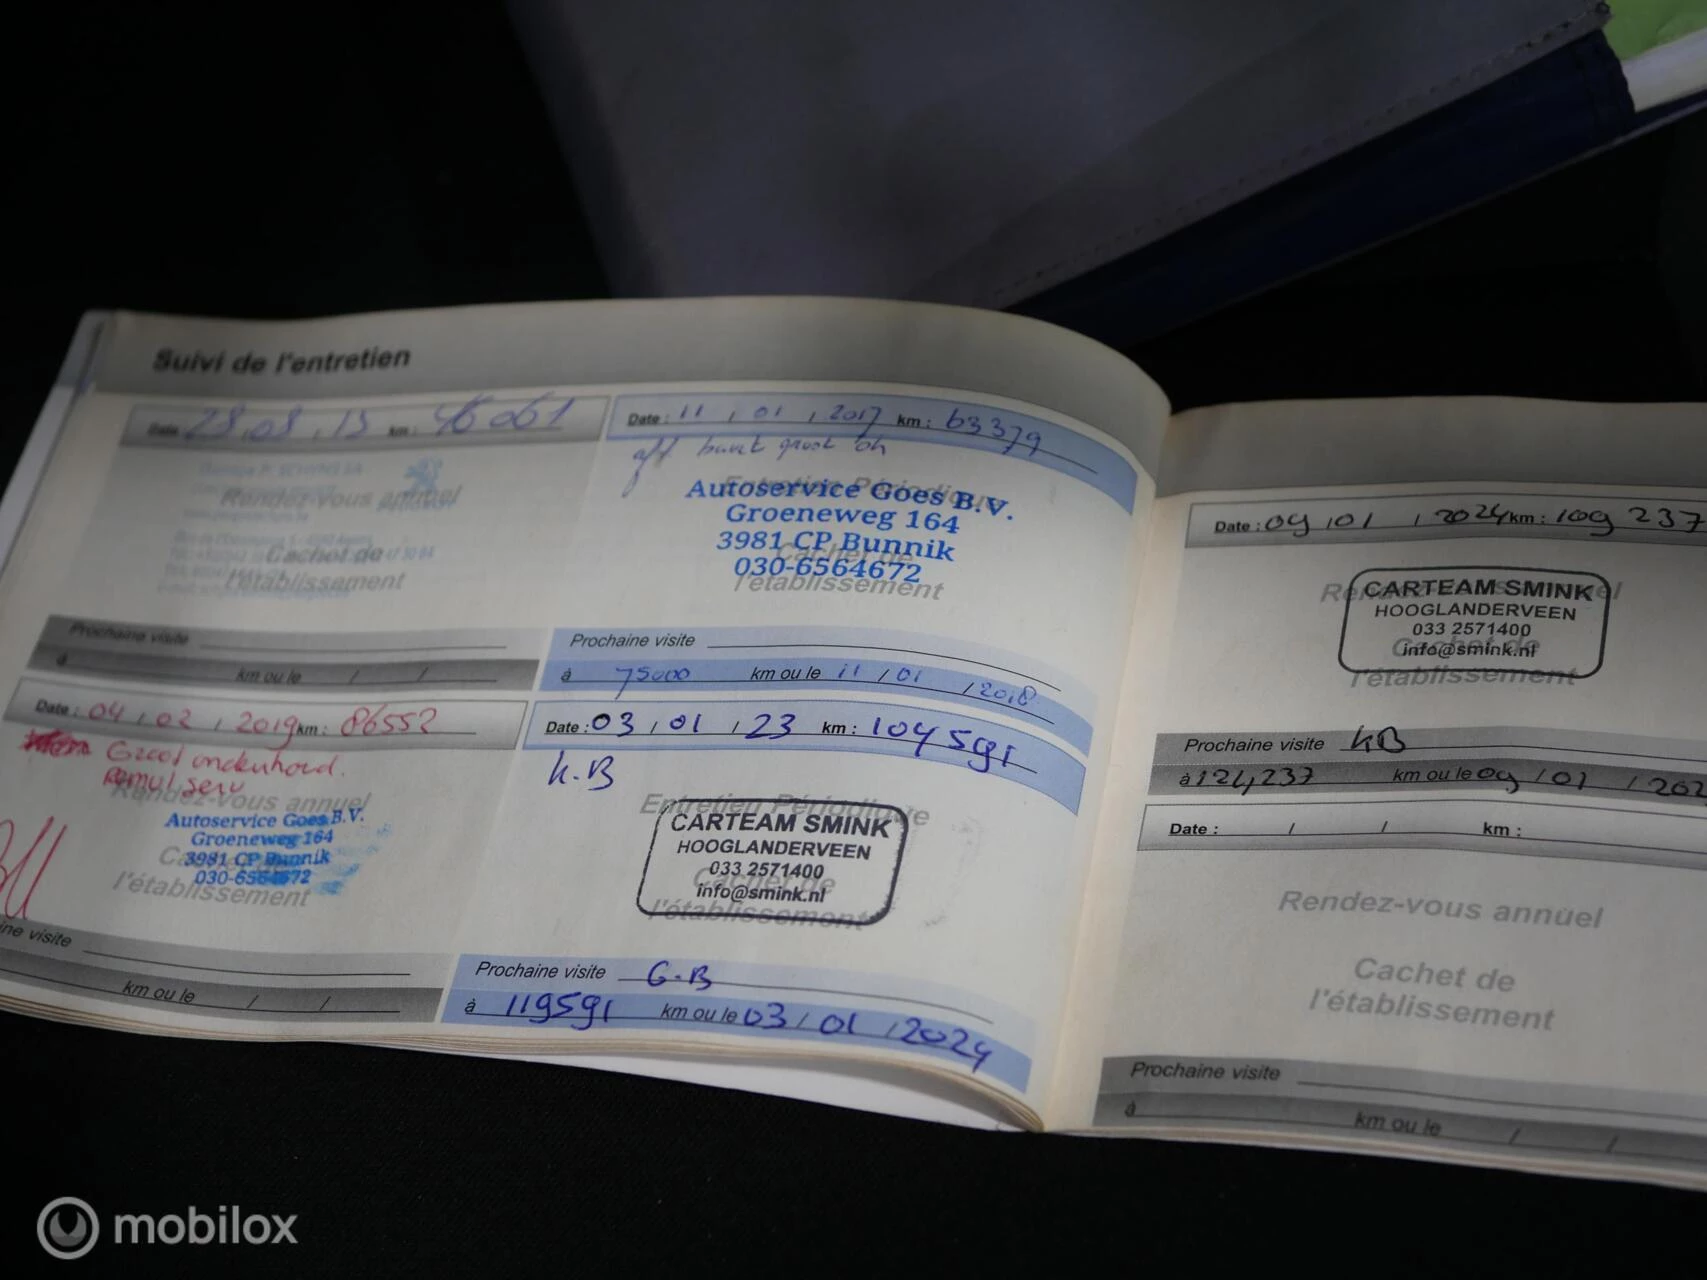 Suivi de l'entretien
Date 28.08.13 km: 46061
Rendez-vous annuel
Cachet de
l'établissement
Prochaine visite
à km ou le / /
Date : 11 / 01 / 2017 km : 63379
Entretien Périodique
Autoservice Goes B.V.
Groeneweg 164
3981 CP Bunnik
Cachet de
030-6564672
l'établissement
Prochaine visite
à 75000 km ou le 11 / 01 / 2018
Date : 04 / 02 / 2019 km : 86552
Groot onderhoud.
Rendez-vous annuel
Autoservice Goes B.V.
Groeneweg 164
3981 CP Bunnik
030-6564672
l'établissement
ine visite
km ou le / /
Date : 03 / 01 / 23 km : 104591
K.B
Entretien Périodique
CARTEAM SMINK
HOOGLANDERVEEN
033 2571400
Cachet de
info@smink.nl
l'établissement
Prochaine visite G.B
à 119591 km ou le 03 / 01 / 2024
Date : 09 / 01 / 2024 km : 109 237
Rendez-vous annuel
CARTEAM SMINK
HOOGLANDERVEEN
033 2571400
Cachet de
info@smink.nl
l'établissement
Prochaine visite KB
à 124,237 km ou le 09 / 01 / 202
Date : / / km :
Rendez-vous annuel
Cachet de
l'établissement
Prochaine visite
à km ou le / /
mobilox